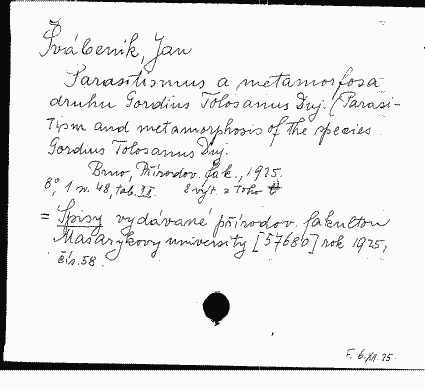 Švábeník, Jan
Parasitismus a metamorfosa
druhu Gordius Tolosanus Duj. (Parasi-
tism and metamorphosis of the species
Gordius Tolosanus Duj.
Brno, Přírodov. fak., 1925.
8°, 1 n. 48, tab. II 2 výt. z toho
= Spisy vydávané přírodov. fakultou
Masarykovy university [57680] rok 1925,
čís. 58.
F. 6. 75